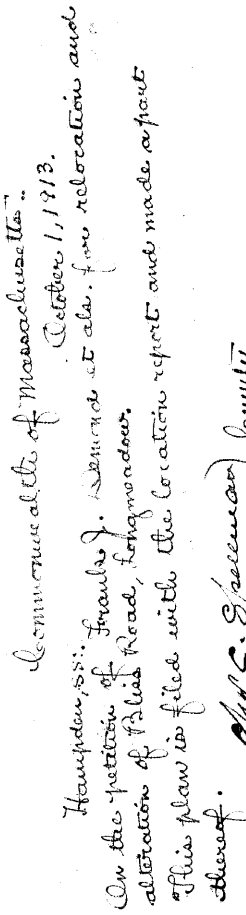 Commonwealth of Massachusetts.
Hampden, ss: October 1, 1913.
On the petition of Frank J. Demond et als. for relocation and
alteration of Bliss Road, Longmeadow.
This plan is filed with the location report and made a part
thereof.
County